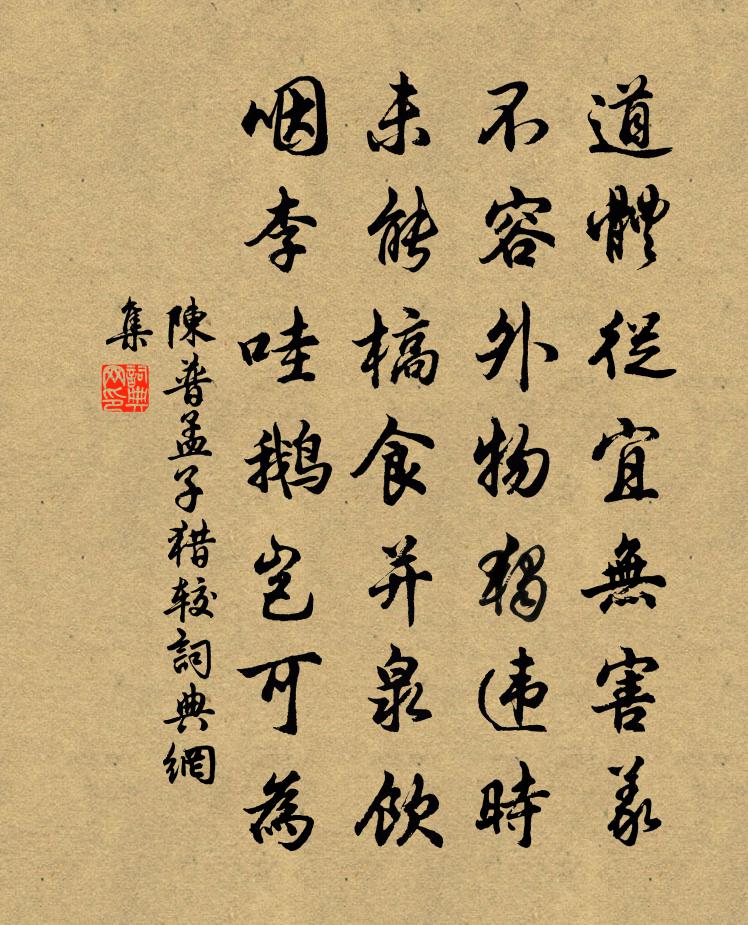 道體從宜無害義
不容外物獨违時
未能槁食并泉飲
咽李哇鹅岂可為
陳普孟子猎较詞典網
集
詞典网印